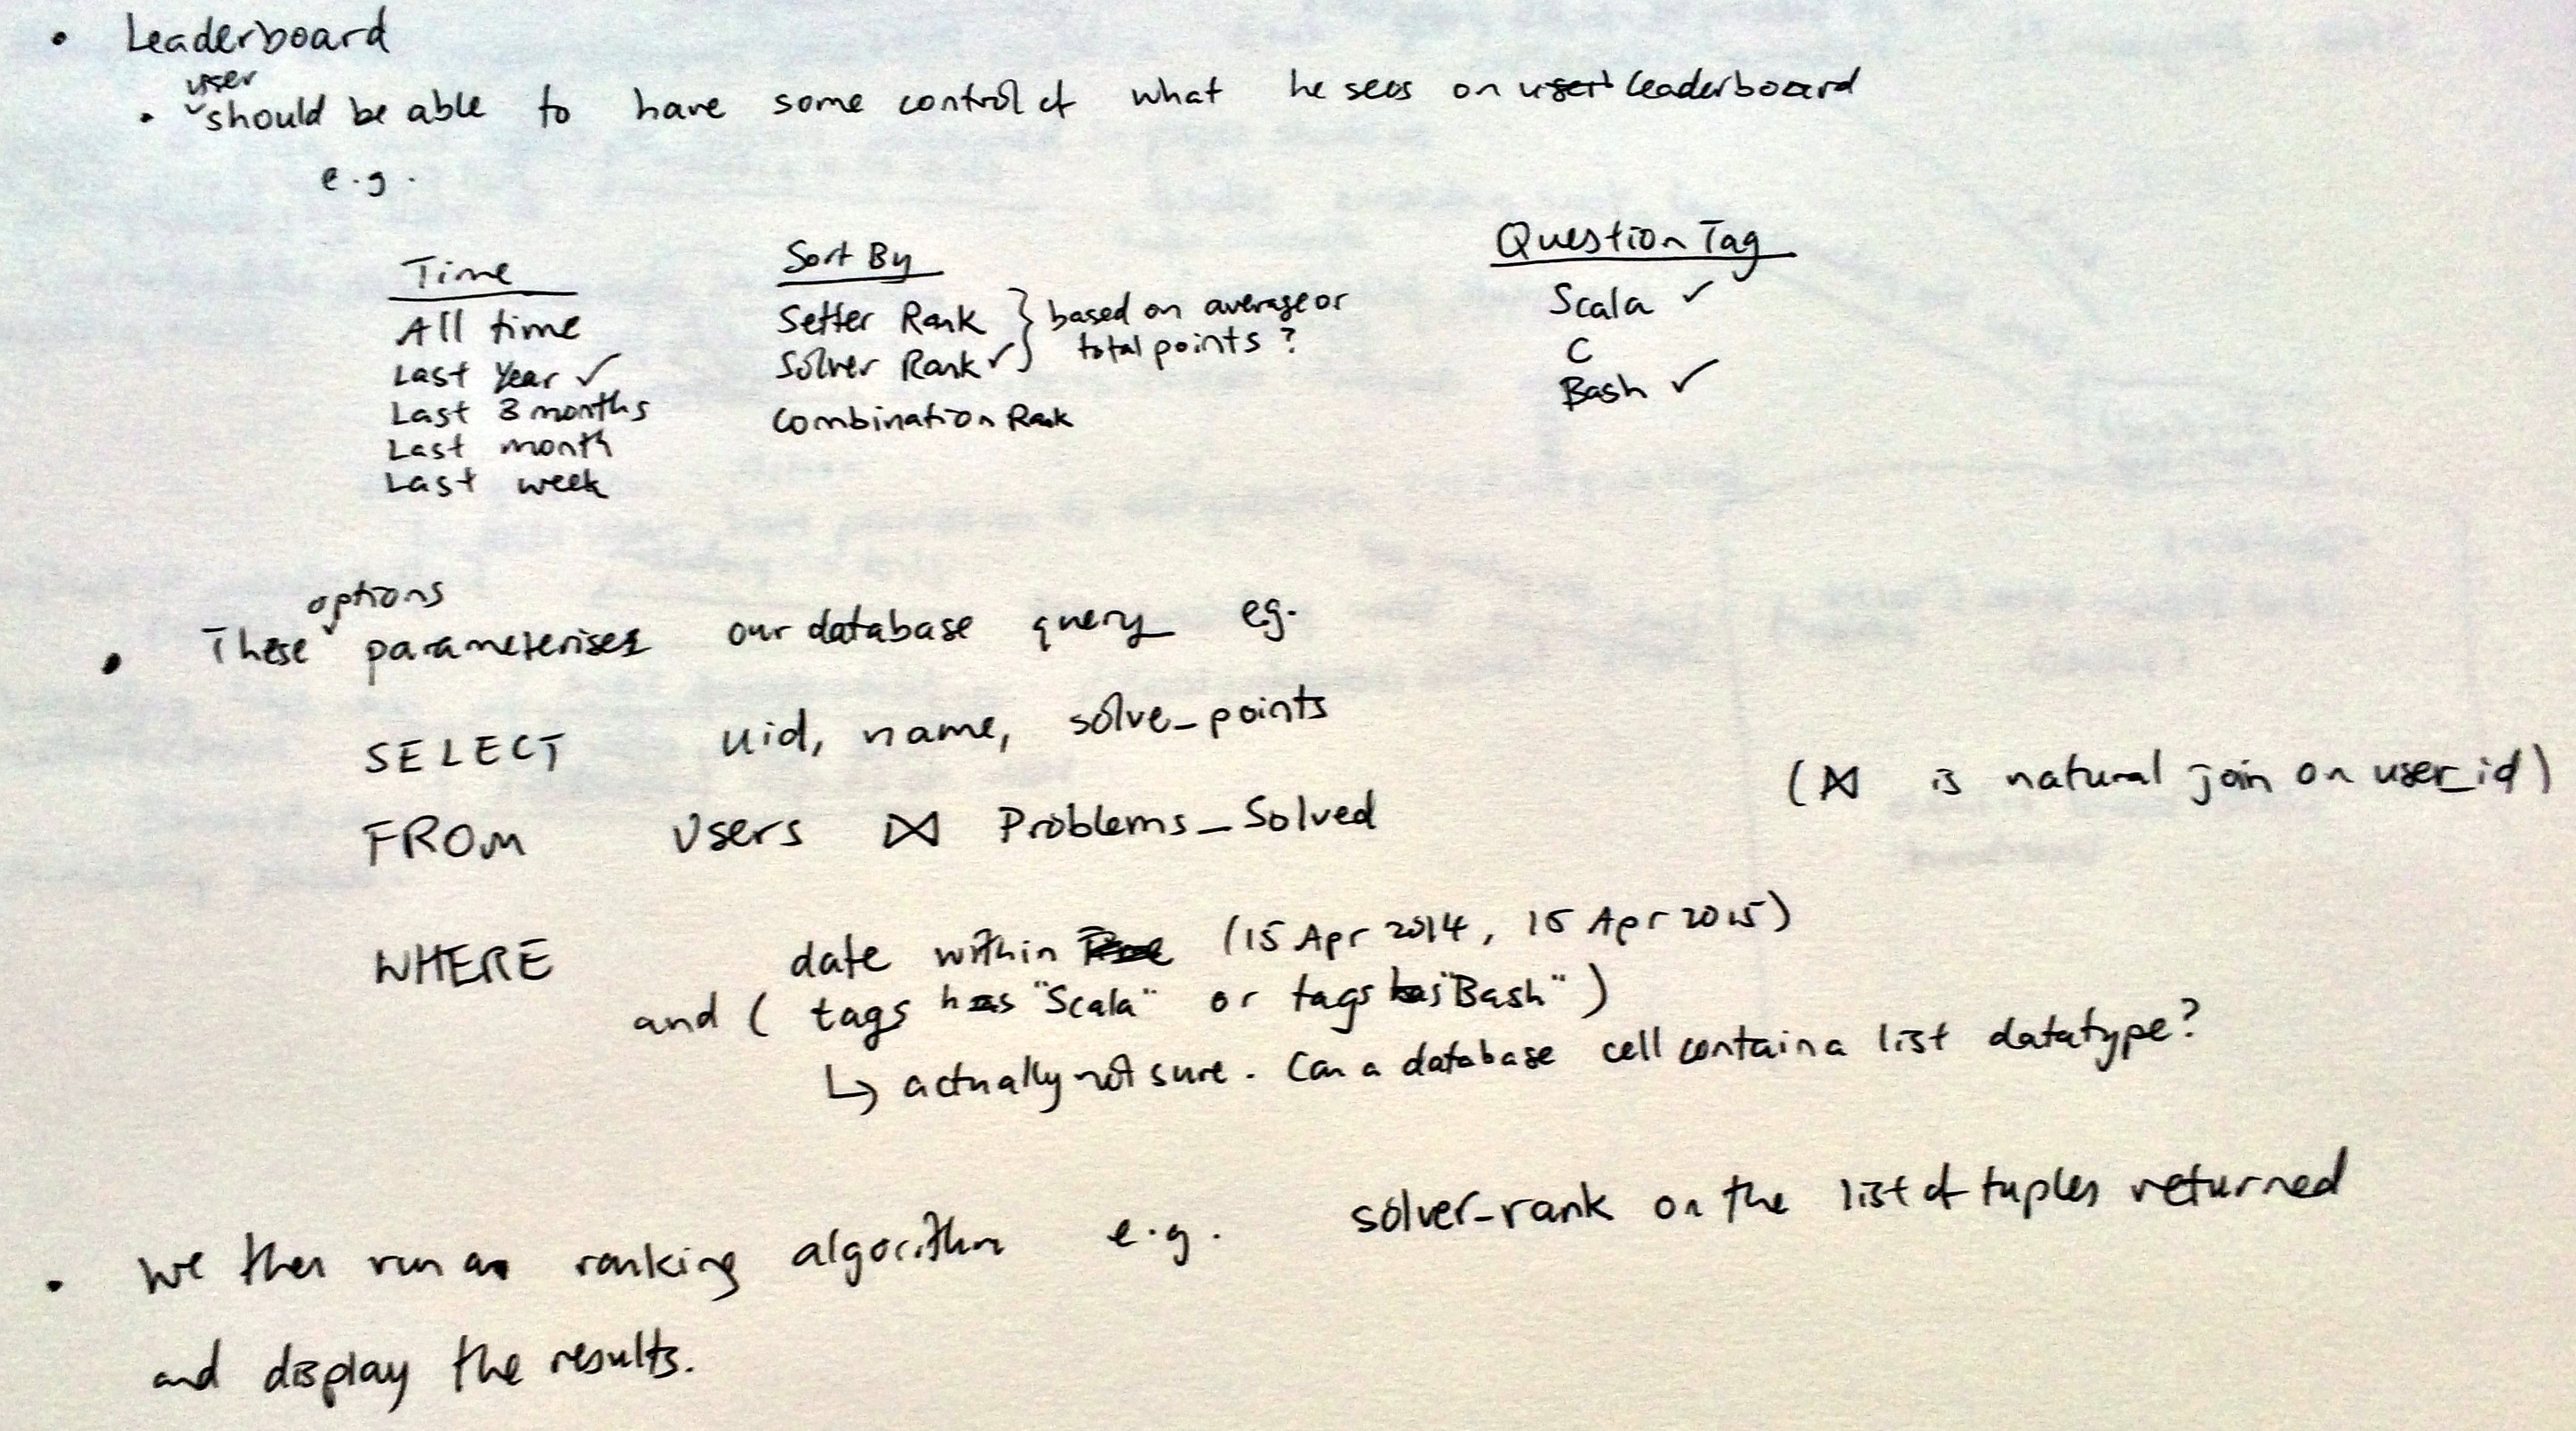 • Leaderboard
• user should be able to have some control of what he sees on user leaderboard
e.g.
Time
All time
Last Year ✓
Last 3 months
Last month
Last week
Sort By
Setter Rank } based on average or
Solver Rank ✓ total points?
Combination Rank
Question Tag
Scala ✓
C
Bash ✓
• These options parameterises our database query eg.
SELECT uid, name, solve_points
FROM Users ⋈ Problems_Solved (⋈ is natural join on user_id)
WHERE date within (15 Apr 2014, 15 Apr 2015)
and ( tags has "Scala" or tags has "Bash" )
↳ actually not sure. Can a database cell contain a list datatype?
• We then run a ranking algorithm e.g. solver_rank on the list of tuples returned
and display the results.